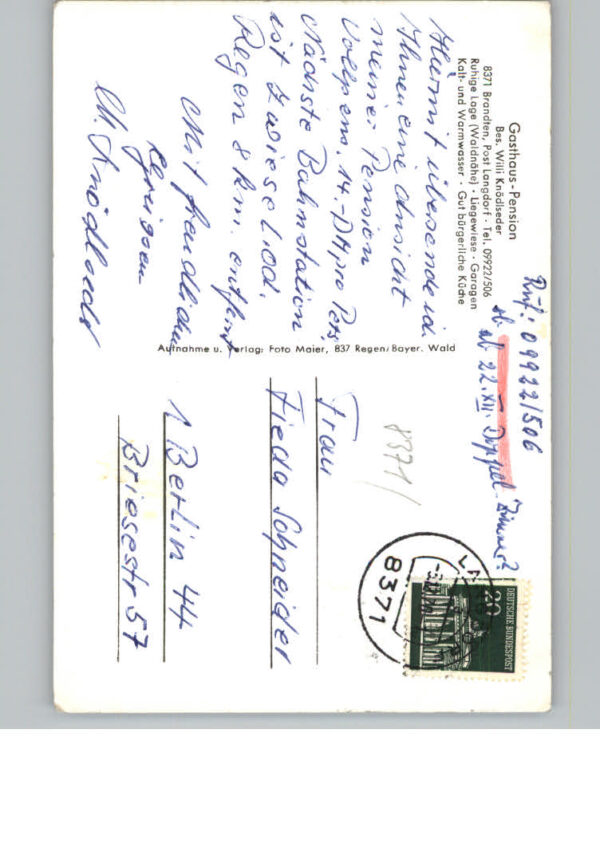 Gasthaus - Pension
Bes. Willi Knödlseder
8371 Brandten, Post Langdorf · Tel. 09922/506
Ruhige Lage (Waldnähe) · Liegewiese · Garagen
Kalt- und Warmwasser · Gut bürgerliche Küche
Hiermit übersende ich
Ihnen eine Ansicht
meiner Pension
Vollpens. 14.- DM pro Pers.
Nächste Bahnstation
ist
Regen 8 km. entfernt
Mit freundlichen
Grüssen
W. Knödlseder
Aufnahme u. Verlag: Foto Maier, 837 Regen/Bayer. Wald
Ruf: 09922/506
ab 22. XII. Doppel-Zimmer?
8371/
DEUTSCHE BUNDESPOST
20
8371
Frau
Frieda Schneider
1 Berlin 44
Briesestr 57